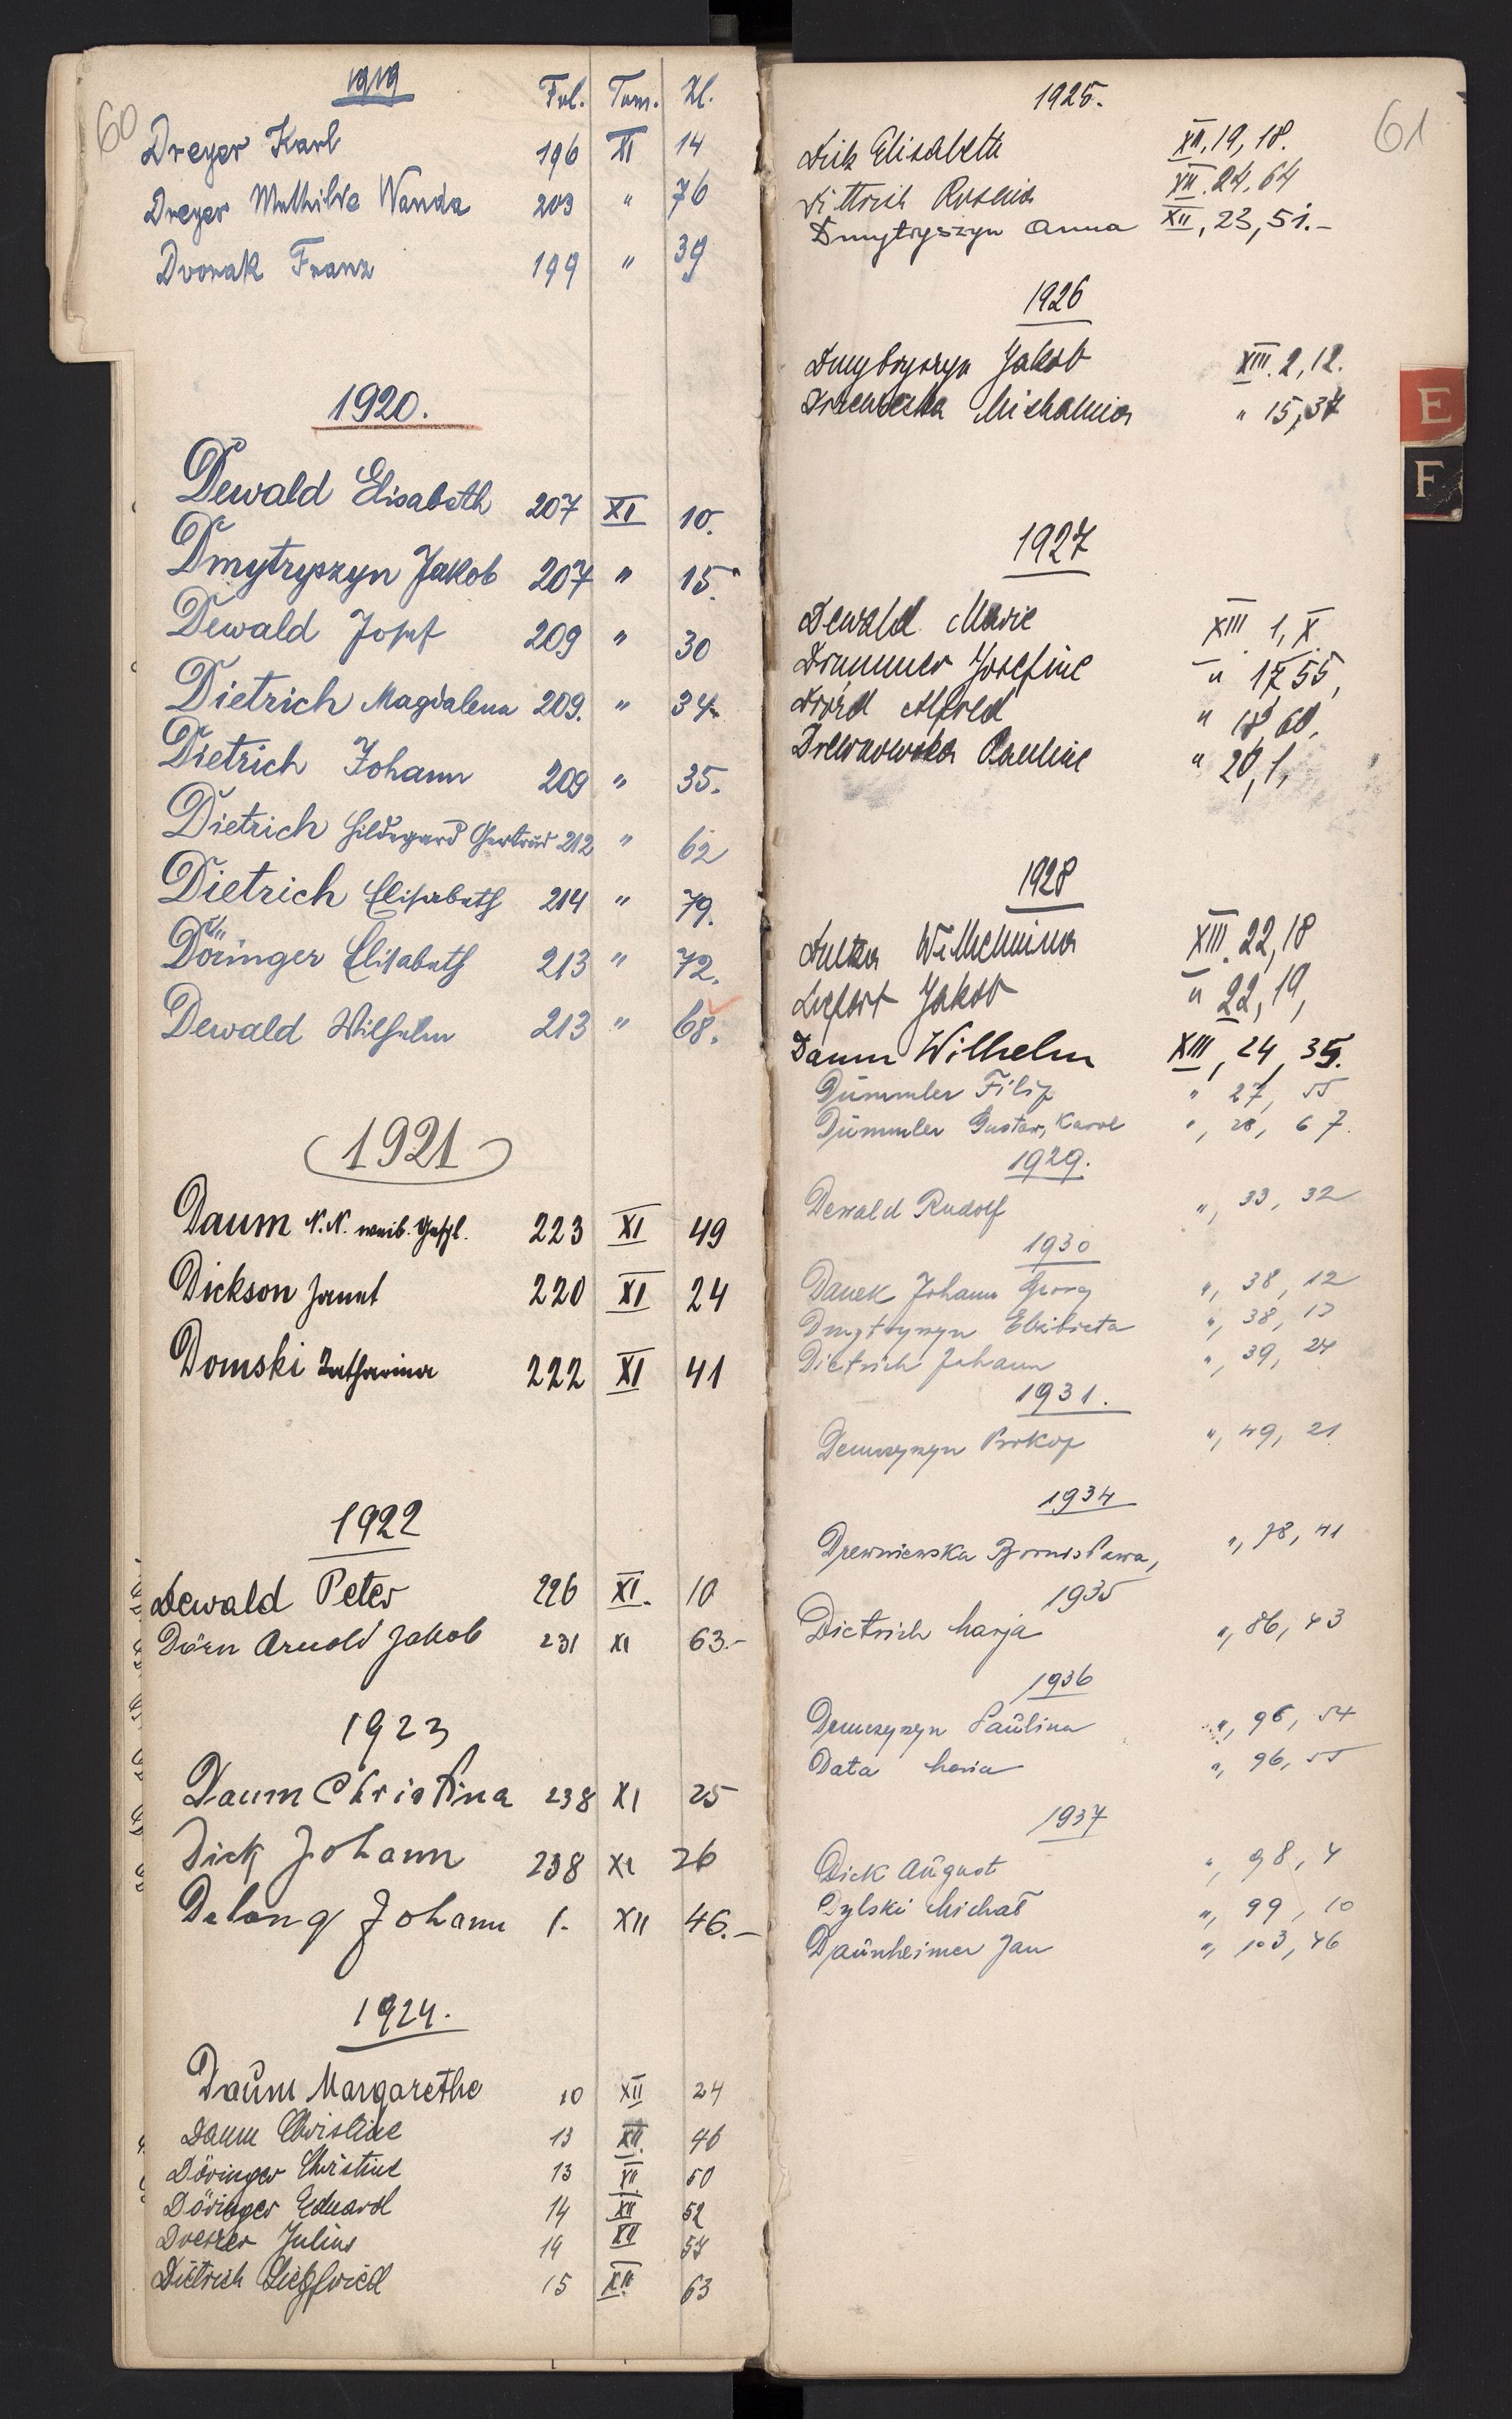 60
1919 Fol. Tom. Zl.
Dreyer Karl 196 XI 14
Dreyer Mathilde Wanda 203 " 76
Dvorak Franz 199 " 39
1920.
Dewald Elisabeth 207 XI 10.
Dmytryszyn Jakob 207 " 15.
Dewald Josef 209 " 30
Dietrich Magdalena 209. " 34
Dietrich Johann 209 " 35.
Dietrich Hildegard Gertrud 212 " 62
Dietrich Elisabeth 214 " 79.
Döringer Elisabeth 213 " 72.
Dewald Wilhelm 213 " 68.
1921
Daum N.N. weib. Geschl. 223 XI 49
Dickson Janet 220 XI 24
Domski Katharina 222 XI 41
1922
Dewald Peter 226 XI. 10
Dörn Arnold Jakob 231 XI 63.-
1923
Daum Christina 238 XI 25
Dick Johann 238 XI 26
Delong Johann 1. XII 46.-
1924.
Daum Margarethe 10 XII 24
Daum Christine 13 XII. 46
Döringer Christine 13 XII. 50
Döringer Eduard 14 XII 52
Julius 14 XII
Dietrich Siegfried 15 XII. 63
61
1925.
Elisabeth XII, 19, 18.
Dittrich XII. 24, 64
Dmytryszyn Anna XII, 23, 51.-
1926
Dmytryszyn Jakob XIII. 2, 12.
" 15, 37
E
F
1927
Dewald Marie XIII 1, X
Drummer Josefine " 17, 55,
Alfred " 18, 60,
Pauline " 20, 1,
1928
Wilhelmina XIII. 22, 18
Jakob " 22, 19,
Daum Wilhelm XIII, 24, 35.
Dümmler Filip " 27, 55
Dümmler Gustav, Karol ", 28, 67.
1929.
Dewald Rudolf ", 33, 32
1930
Danek Johann Georg ", 38, 12
Dmytryszyn Elżbieta ", 38, 13
Dietrich Johann ", 39, 24
1931.
Demszyszyn Prokop ", 49, 21
1934
Drewniewska Bronisława, ", 78, 41
1935
Dietrich Marja ", 86, 43
1936
Demszyszyn Paulina ", 96, 54
Data Maria ", 96, 55
1937
Dick August ", 98, 4
Dylski Michał ", 99, 10
Daunheimer Jan ", 103, 46